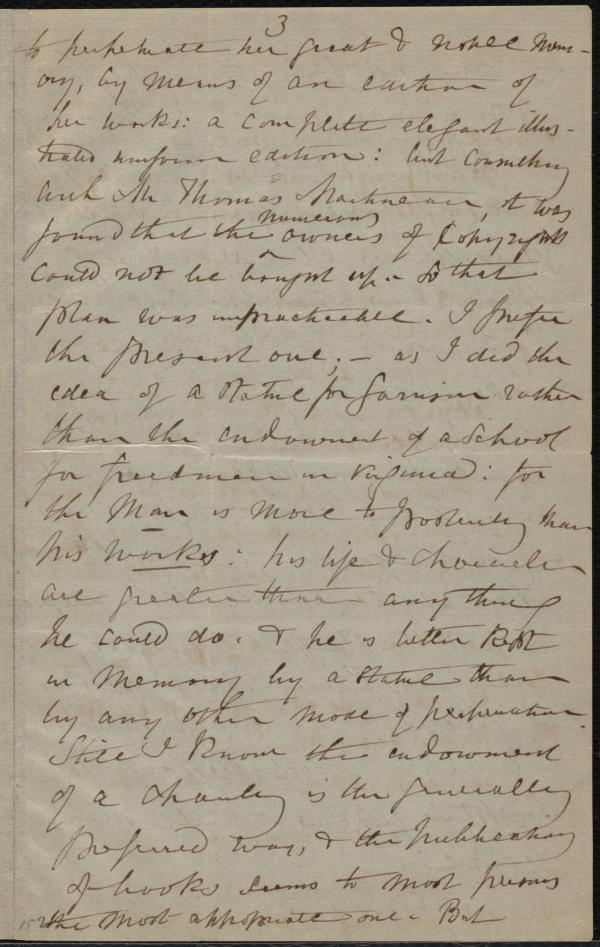 3
to perpetuate her great & noble mem-
ory, by means of an edition of
her works: a complete elegant illus-
trated uniform edition: but consulting
with Mr Thomas Martineau, it was
numerous
found that the ^ owners of Copyrights
could not be bought up. So that
plan was impracticable. I prefer
the present one; — as I did the
idea of a statue for Garrison rather
than the endowment of a school
for freedmen in Virginia: for
the Man is more to posterity than
his works: his life & character
are greater than anything
he could do. & he is better kept
in memory by a statue than
by any other mode of perpetuation.
Still I know the endowment
of a charity is the generally
preferred way, & the publication
of books seems to most persons
the most appropriate one. But